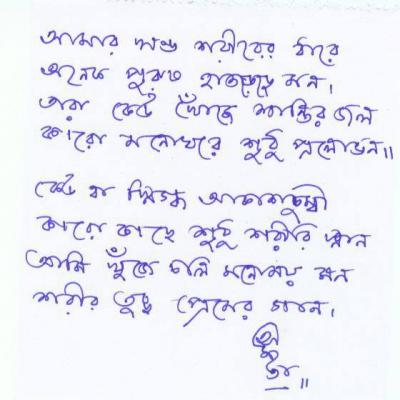 আমার শুভ্র শরীরের ধারে
অনেক পুরুষ হাতড়েছে মন।
তারা কেউ খোঁজে শান্তির জল
কারো মনোঘরে শুধু প্রলোভন॥
কেউ বা স্নিগ্ধ আকাশচুম্বী
কারো কাছে শুধু শরীরি ঘ্রান
আমি খুঁজে চলি মনোময় মন
শরীর তুচ্ছ প্রেমের গানে।